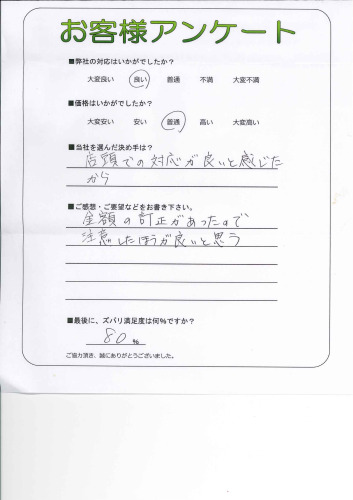 お客様アンケート
■弊社の対応はいかがでしたか?
大変良い 良い 普通 不満 大変不満
■価格はいかがでしたか?
大変安い 安い 普通 高い 大変高い
■当社を選んだ決め手は?
店頭での対応が良いと感じた
から
■ご感想・ご要望などをお書き下さい。
金額の訂正があったので
注意したほうが良いと思う
■最後に、ズバリ満足度は何%ですか?
80%
ご協力頂き、誠にありがとうございました。